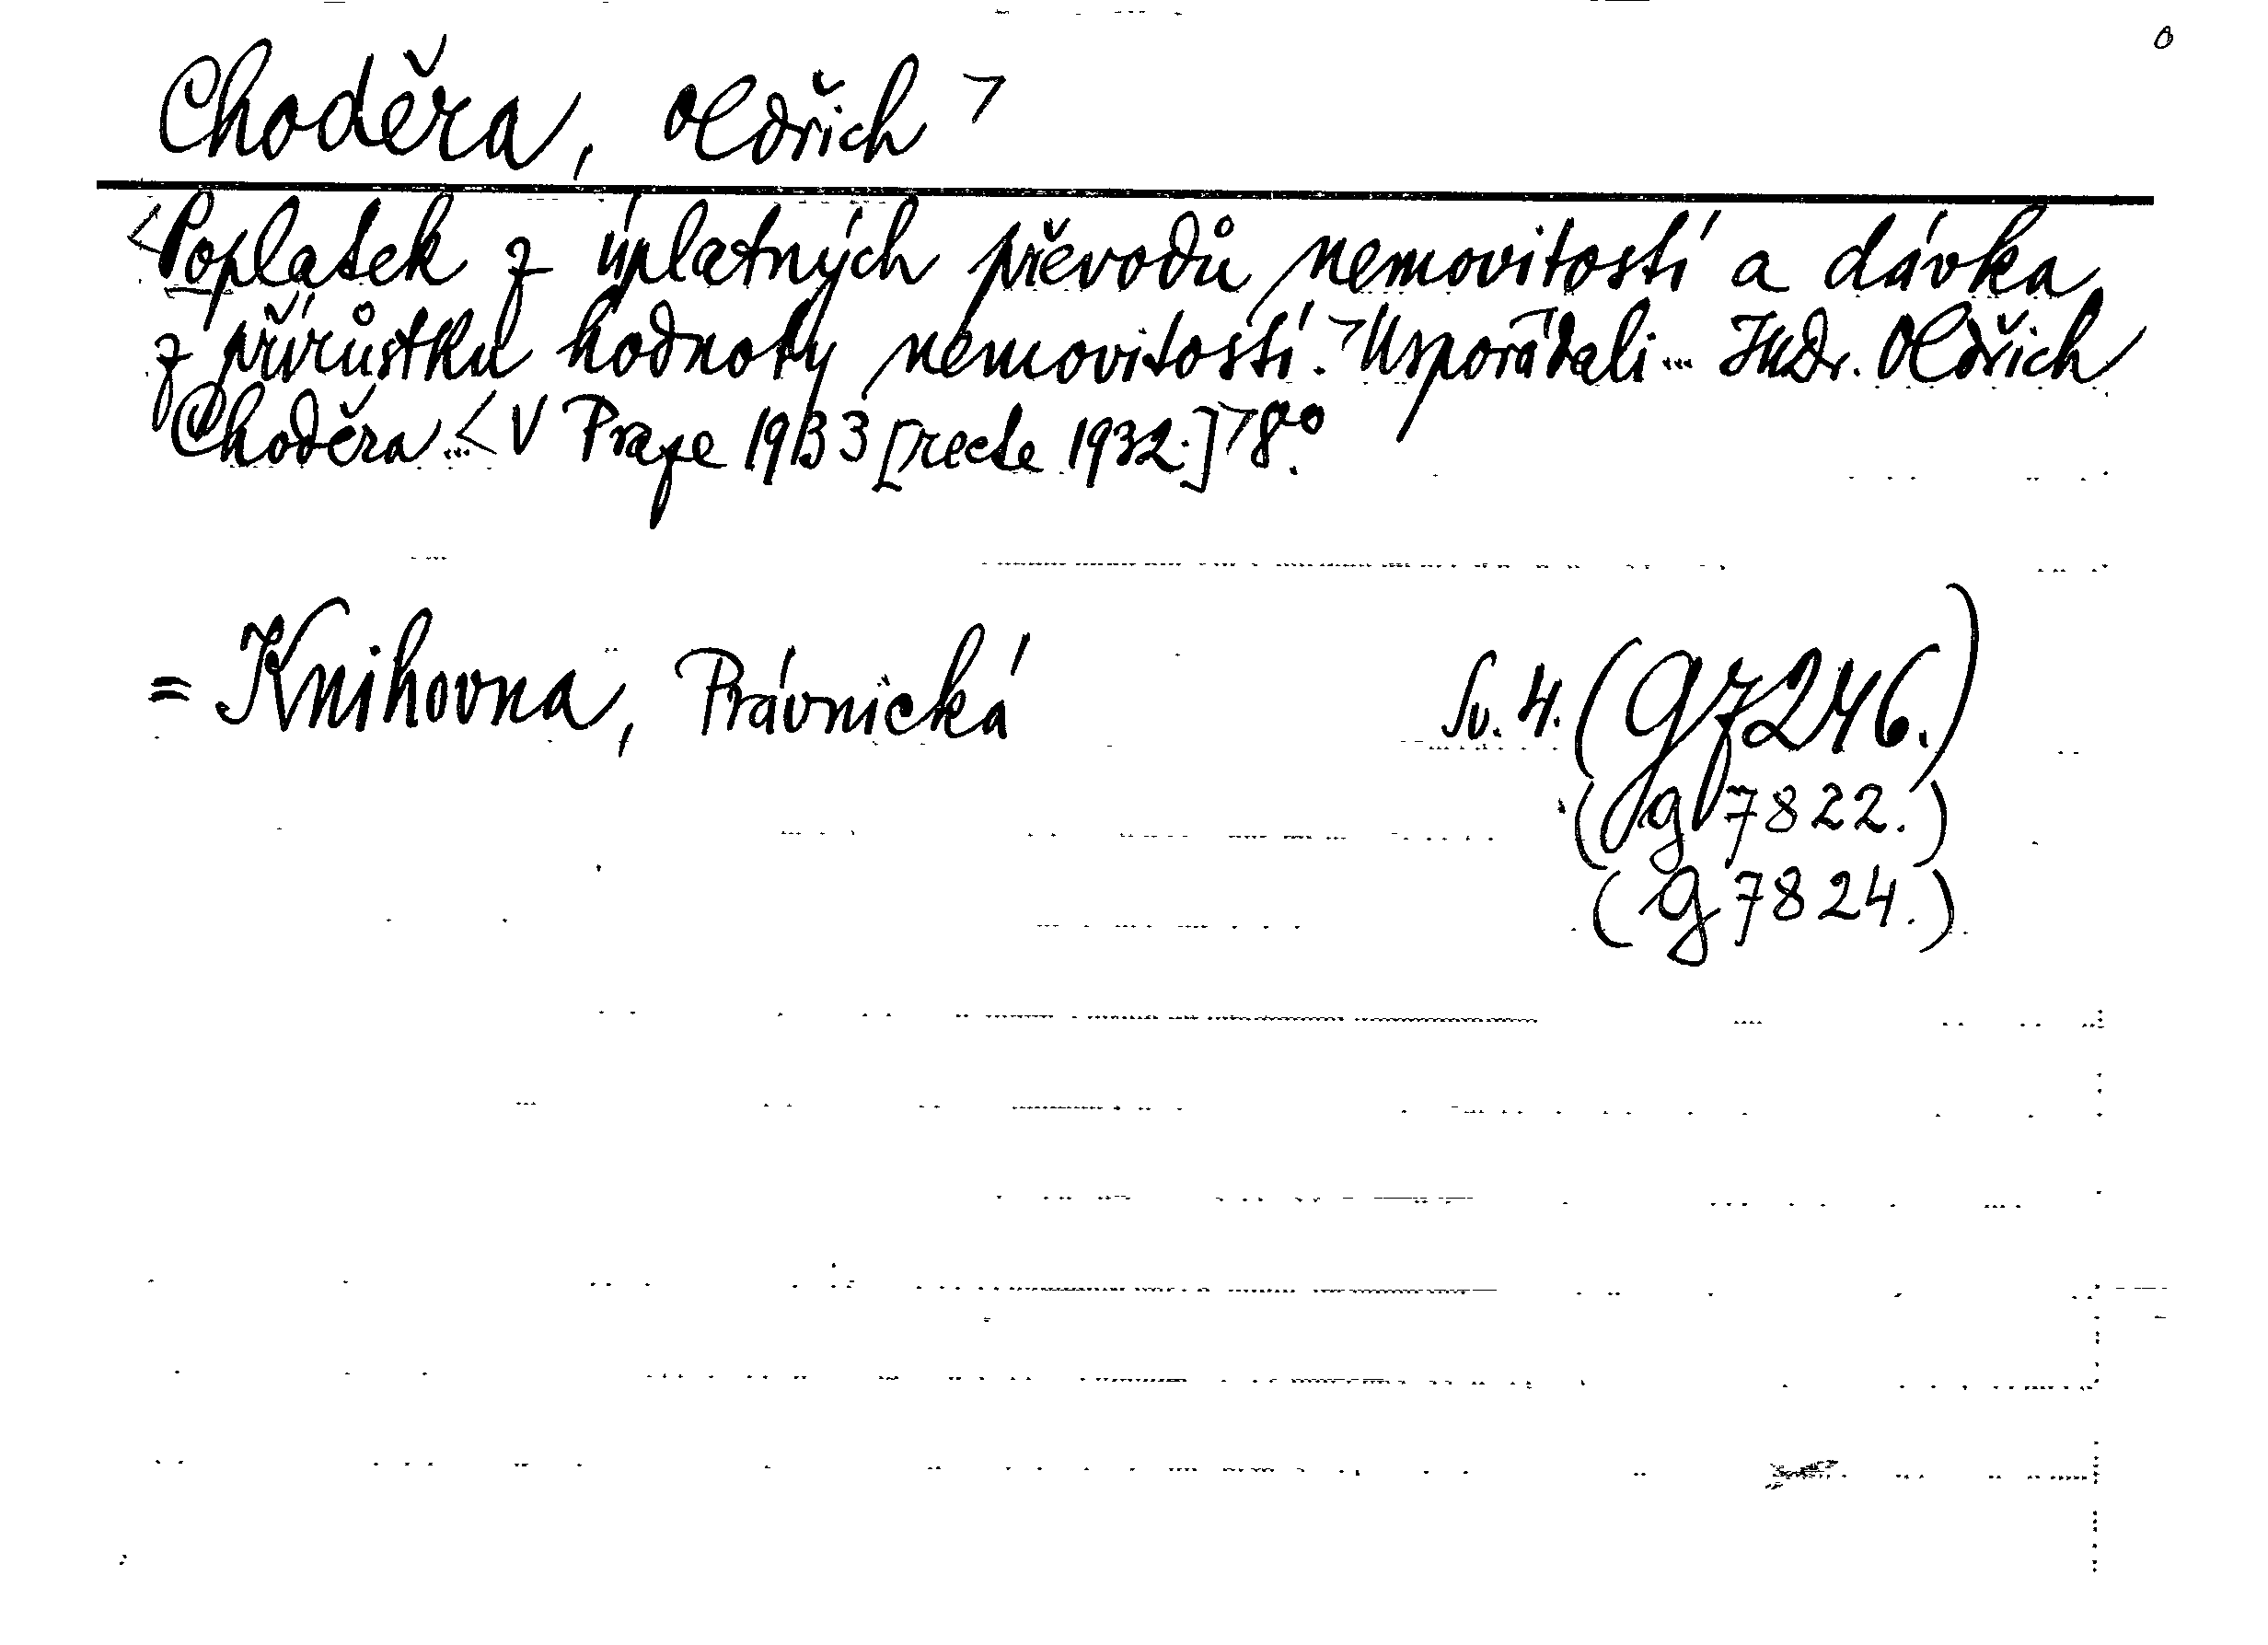 Choděra, Oldřich >
<Poplatek z úplatných převodů nemovitostí a dávka
z přírůstku hodnoty nemovitostí.> Uspořádali ... JUDr. Oldřich
Choděra ... < V Praze 1933 [recte 1932.] > 8°.
= Knihovna, Právnická Sv. 4. (g 7246.)
(g 7822.)
(g 7824.)